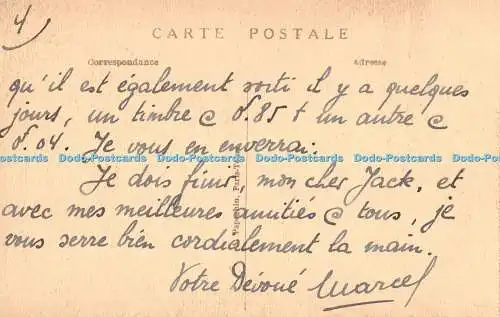 4
CARTE POSTALE
Correspondance Adresse
qu'il est également sorti il y a quelques
jours, un timbre @ 0.85 + un autre @
0.04. Je vous en enverrai.
Dodo-Postcards Dodo-Postcards Dodo-Postcards Dodo-Postcards Dodo-Postcards Dodo-Postcards
Je dois finir, mon cher Jack, et
avec mes meilleures amitiés @ tous, je
vous serre bien cordialement la main.
Votre Dévoué Marcel